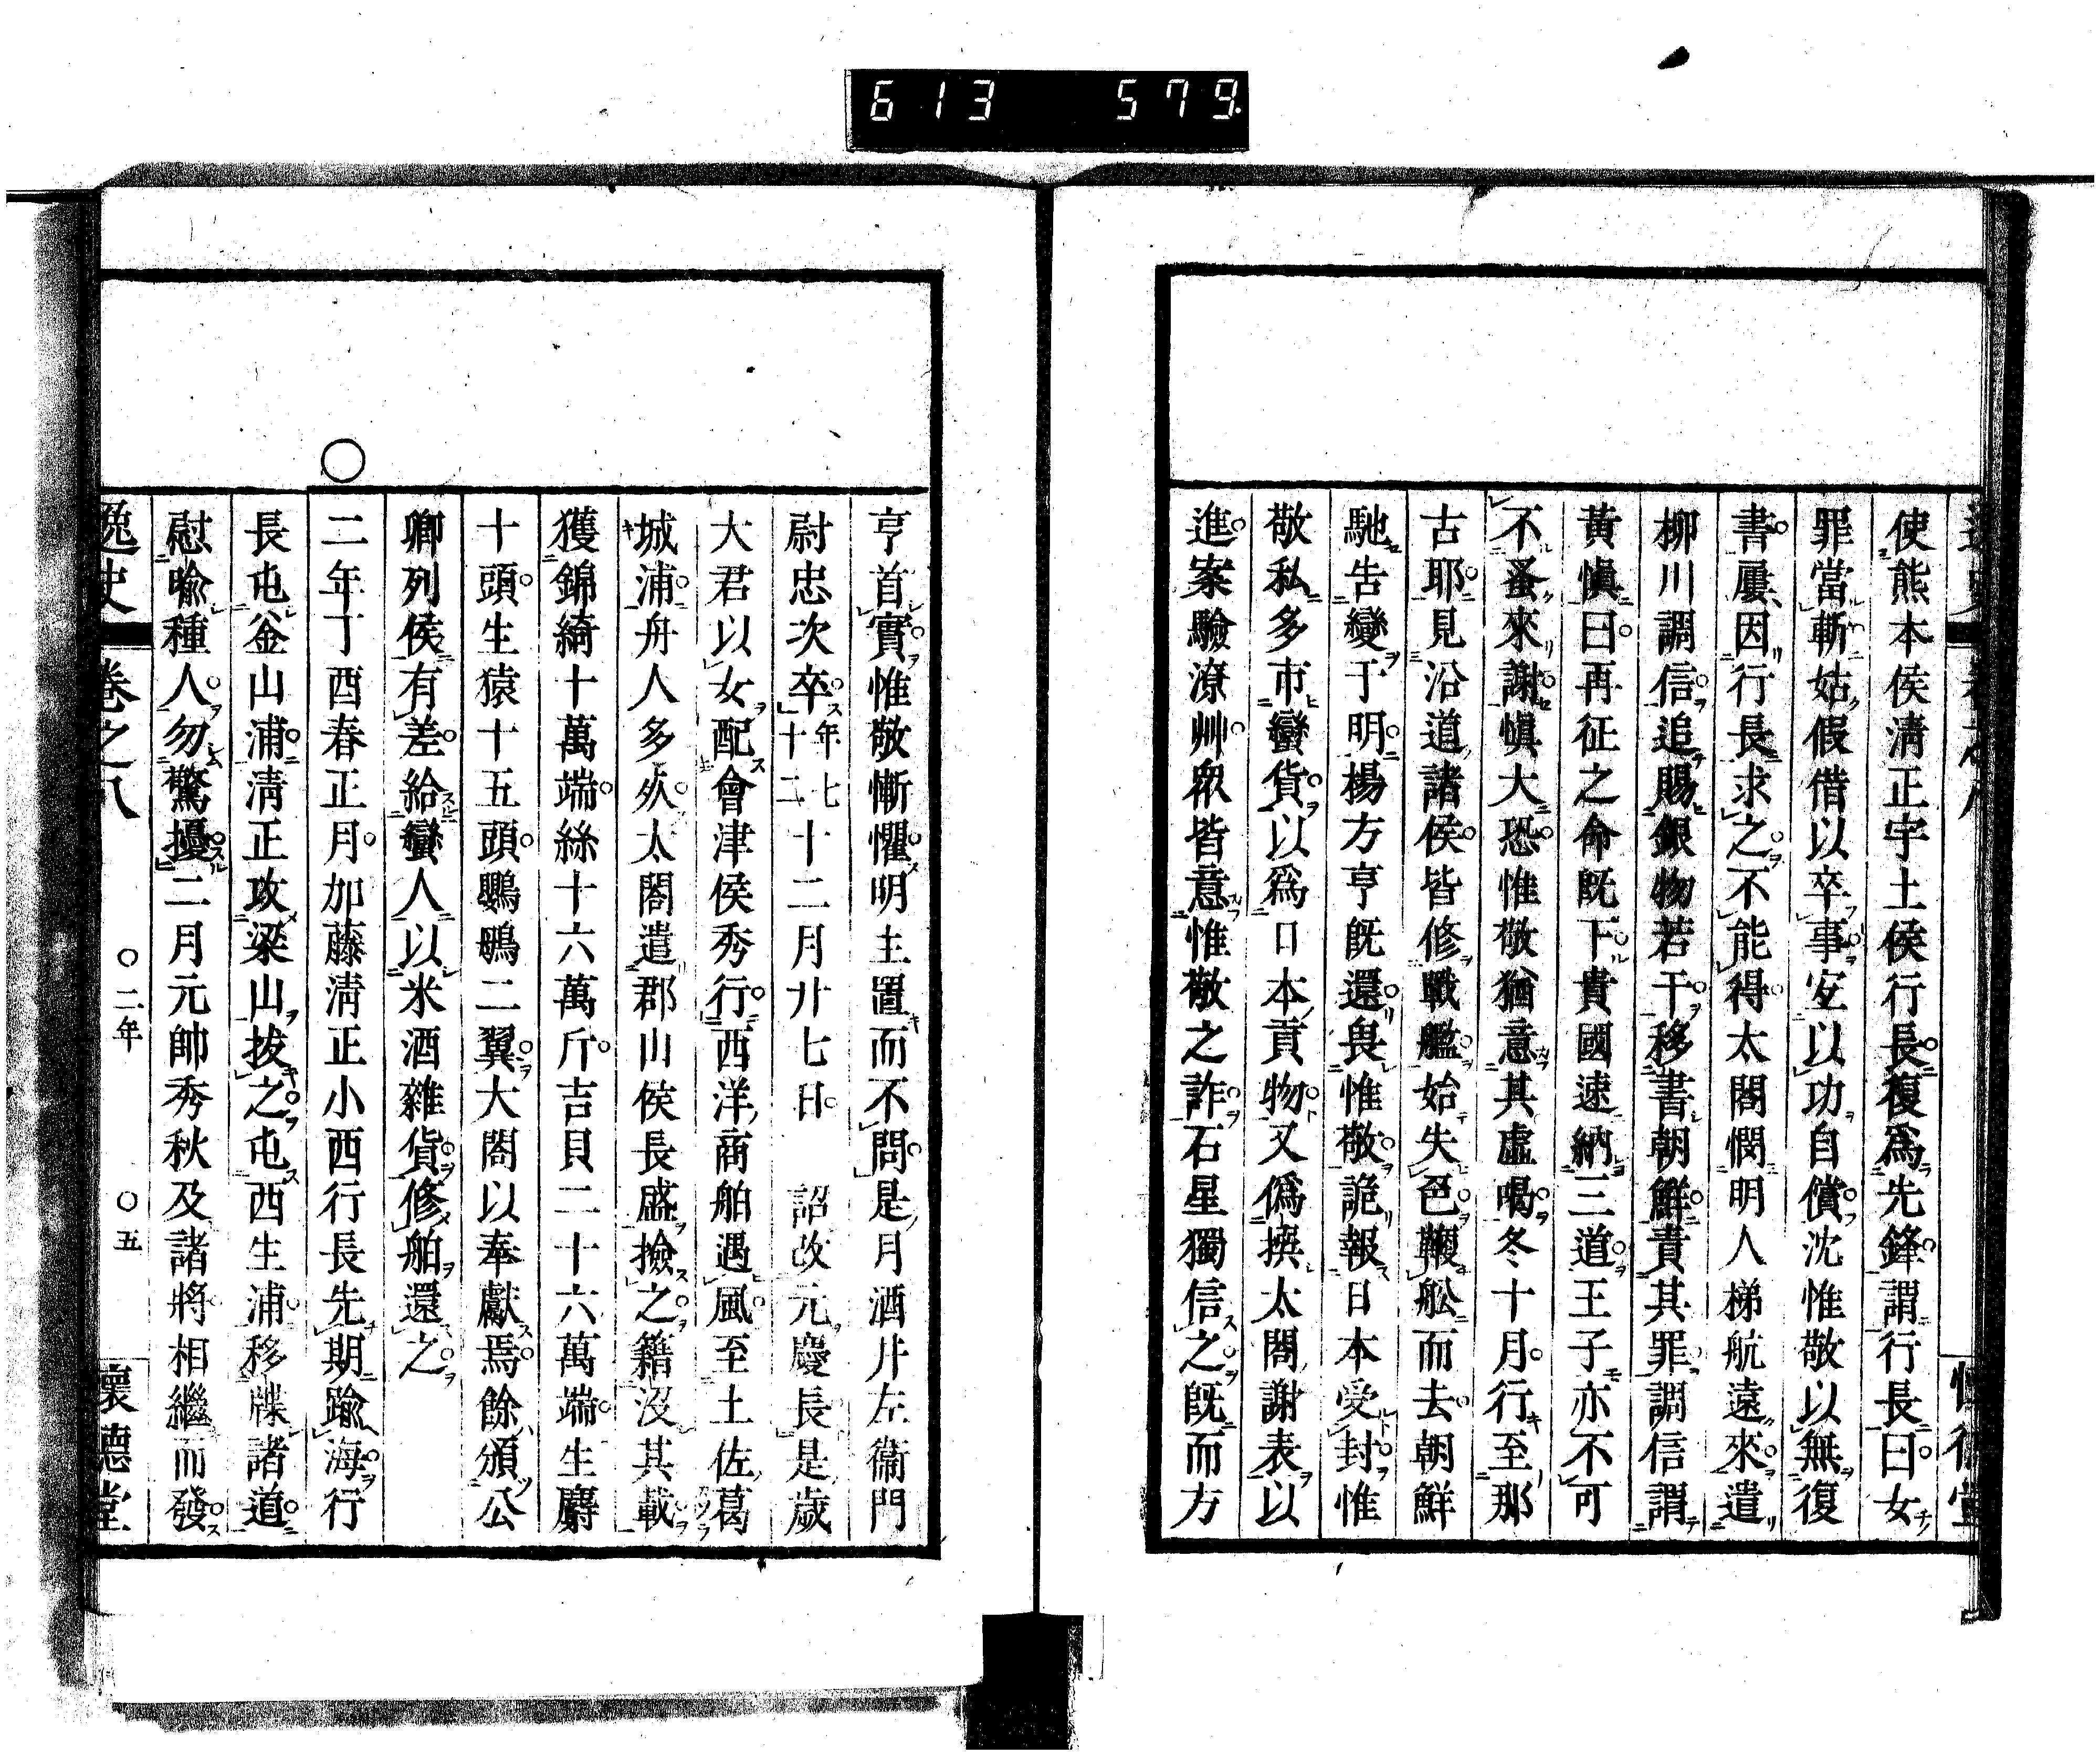 613 579
使熊本侯淸正宇土侯行長復爲先鋒謂行長曰女
罪當斬姑假借以卒事宐以功自償沈惟敬以無復
書屢因行長求之不能得太閤憫明人梯航遠來遣
柳川調信追賜銀物若干移書朝鮮責其罪調信謂
黃愼曰再征之命旣下貴國速納三道王子亦不可
不蚤來謝愼大恐惟敬猶意其虛喝冬十月行至那
古耶見沿道諸侯皆修戰艦始失色鞭舩而去朝鮮
馳告變于明楊方亨旣還畏惟敬詭報日本受封惟
敬私多市蠻貨以爲日本貢物又僞撰太閤謝表以
進案驗潦艸衆皆意惟敬之詐石星獨信之旣而方
亨首實惟敬慚懼明主置而不問是月酒井左衞門
尉忠次卒年七十二十二月廿七日 詔改元慶長是歲
大君以女配會津侯秀行西洋商舶遇風至土佐葛
城浦舟人多歿太閤遣郡山侯長盛撿之籍沒其載
獲錦綺十萬端絲十六萬斤吉貝二十六萬端生麝
十頭生猿十五頭鸚鵡二翼大閤以奉獻焉餘頒公
卿列侯有差給蠻人以米酒雜貨修舶還之
○
二年丁酉春正月加藤淸正小西行長先期踰海行
長屯釜山浦淸正攻梁山拔之屯西生浦移牒諸道
慰喩種人勿驚擾二月元帥秀秋及諸將相繼而發
逸史 卷之八 ○二年 ○五 懷德堂